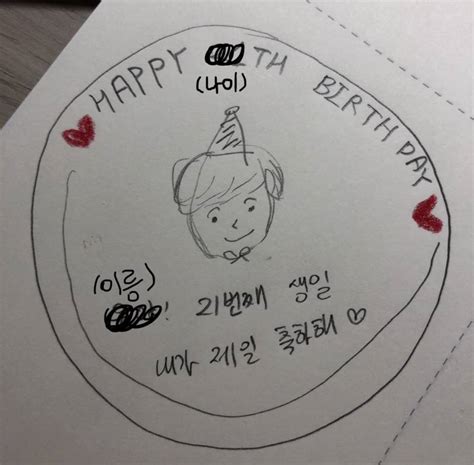 HAPPY TH BIRTHDAY
(나이)
(이름)
! 21번째 생일
내가 제일 축하해 ♡